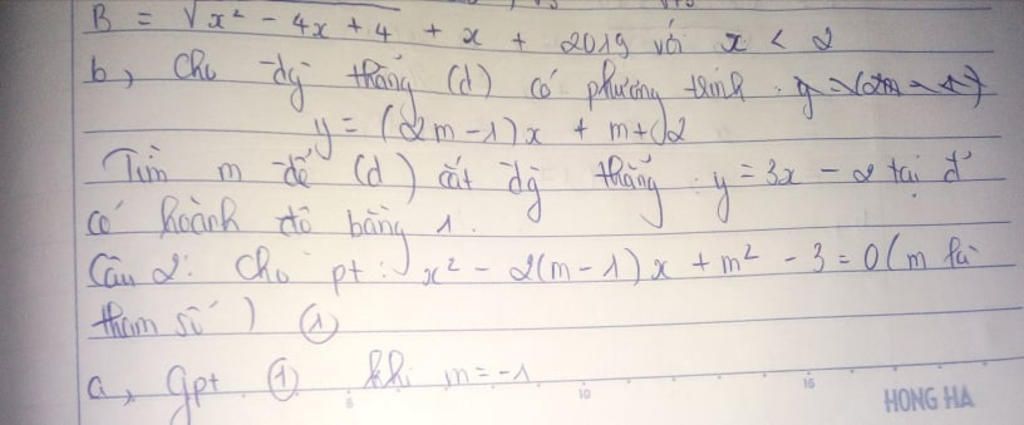 B = √x² - 4x + 4 + x + 2019 với x < 2
b, Cho đg thẳng (d) có phương trình :
y = (2m-1)x + m+2
Tìm m để (d) cắt đg thẳng : y = 3x - 2 tại đ'
có hoành độ bằng 1.
Câu 2: Cho pt : x² - 2(m-1)x + m² - 3 = 0 ( m là
tham số ) (1)
a, Gpt (1) khi m = -1
5 10 15
HONG HA